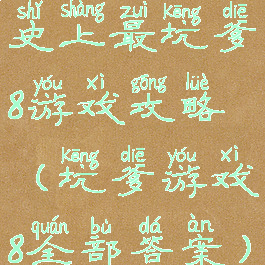 shǐ shàng zuì kēng diē
史上最坑爹
yóu xì gōng lüè
8游戏攻略
kēng diē yóu xì
（坑爹游戏
quán bù dá àn
8全部答案）